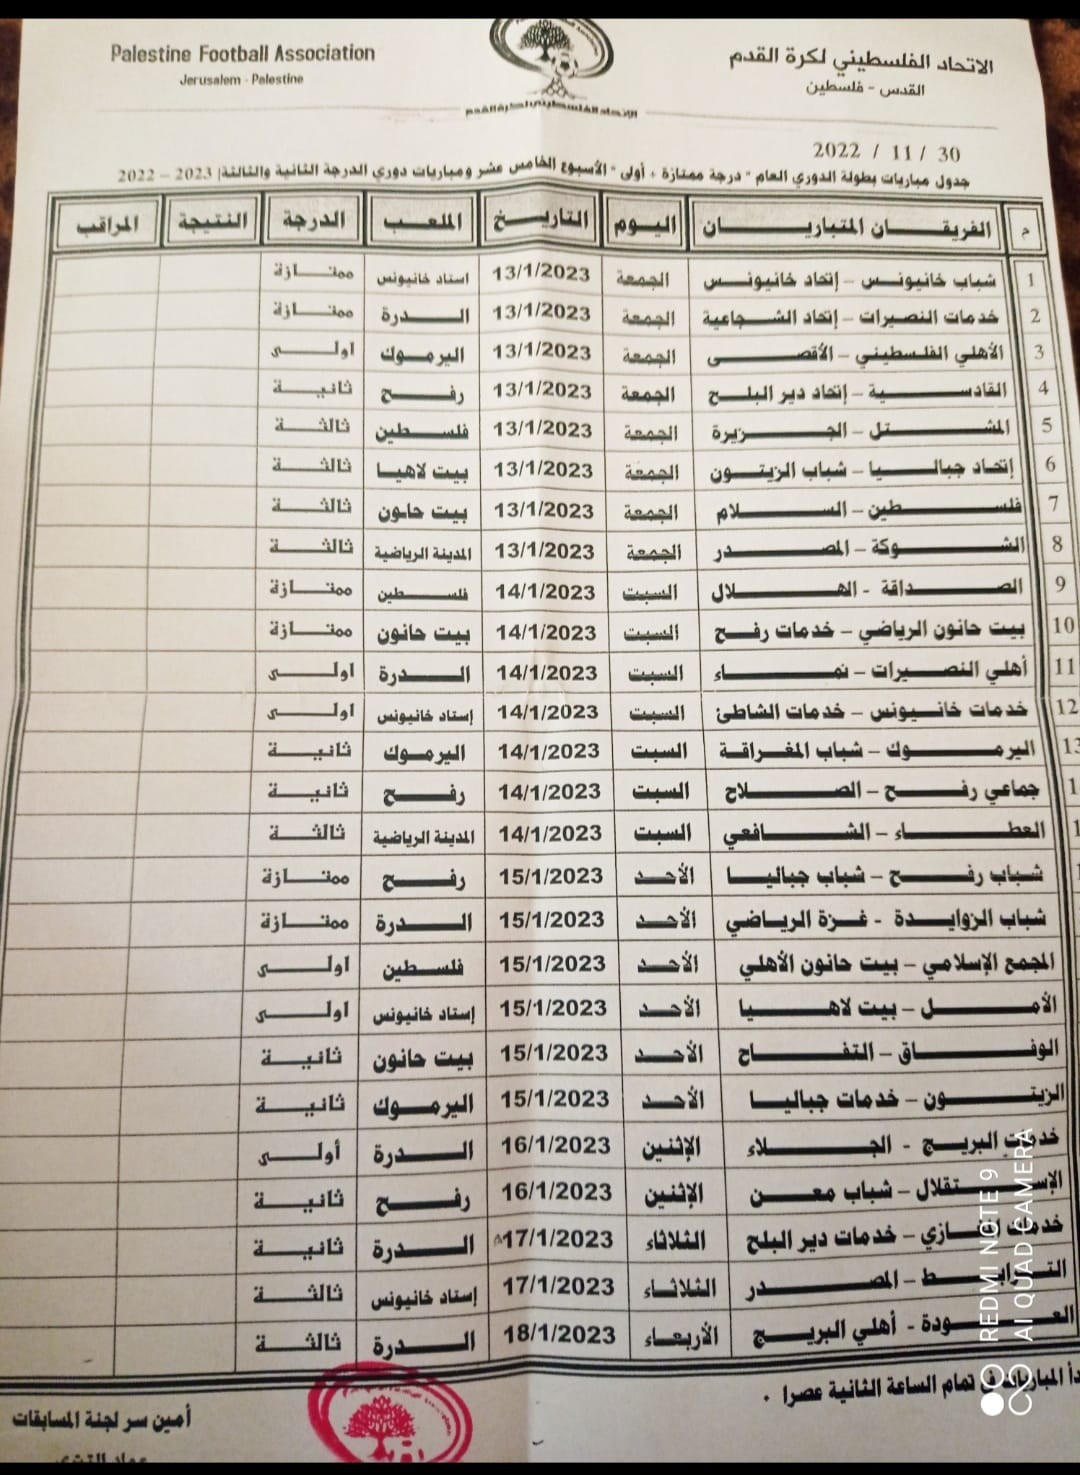 Palestine Football Association
Jerusalem - Palestine
الاتحاد الفلسطيني لكرة القدم
القدس - فلسطين
الاتحاد الفلسطيني لكرة القدم
2022 / 11 / 30
جدول مباريات بطولة الدوري العام "درجة ممتازة ، أولى" الأسبوع الخامس عشر ومباريات دوري الدرجة الثانية والثالثة| 2023 – 2022
م الفريقان المتباريان اليوم التاريخ الملعب الدرجة النتيجة المراقب
1 شباب خانيونس – إتحاد خانيونس الجمعة 13/1/2023 استاد خانيونس ممتازة
2 خدمات النصيرات – إتحاد الشجاعية الجمعة 13/1/2023 الدرة ممتازة
3 الأهلي الفلسطيني – الأقصى الجمعة 13/1/2023 اليرموك اولى
4 القادسية – إتحاد دير البلح الجمعة 13/1/2023 رفح ثانية
5 المشتل – الجزيرة الجمعة 13/1/2023 فلسطين ثالثة
6 إتحاد جباليا – شباب الزيتون الجمعة 13/1/2023 بيت لاهيا ثالثة
7 فلسطين – السلام الجمعة 13/1/2023 بيت حانون ثالثة
8 الشوكة – المصدر الجمعة 13/1/2023 المدينة الرياضية ثالثة
9 الصداقة - الهلال السبت 14/1/2023 فلسطين ممتازة
10 بيت حانون الرياضي – خدمات رفح السبت 14/1/2023 بيت حانون ممتازة
11 أهلي النصيرات – نماء السبت 14/1/2023 الدرة اولى
12 خدمات خانيونس – خدمات الشاطئ السبت 14/1/2023 إستاد خانيونس اولى
13 اليرموك – شباب المغراقة السبت 14/1/2023 اليرموك ثانية
1 جماعي رفح – الصلاح السبت 14/1/2023 رفح ثانية
1 العطاء – الشافعي السبت 14/1/2023 المدينة الرياضية ثالثة
شباب رفح – شباب جباليا الأحد 15/1/2023 رفح ممتازة
شباب الزوايدة - غزة الرياضي الأحد 15/1/2023 الدرة ممتازة
المجمع الإسلامي – بيت حانون الأهلي الأحد 15/1/2023 فلسطين اولى
الأمل – بيت لاهيا الأحد 15/1/2023 إستاد خانيونس اولى
الوفاق – التفاح الأحد 15/1/2023 بيت حانون ثانية
الزيتون – خدمات جباليا الأحد 15/1/2023 اليرموك ثانية
خدمات البريج - الجلاء الإثنين 16/1/2023 الدرة أولى
الإستقلال – شباب معن الإثنين 16/1/2023 رفح ثانية
خدمات المغازي – خدمات دير البلح الثلاثاء 17/1/2023 الدرة ثانية
الترابط – المصدر الثلاثاء 17/1/2023 إستاد خانيونس ثالثة
العودة - أهلي البريج الأربعاء 18/1/2023 الدرة ثالثة
دأ المباريات في تمام الساعة الثانية عصرا .
أمين سر لجنة المسابقات
REDMI NOTE 9
AI QUAD CAMERA